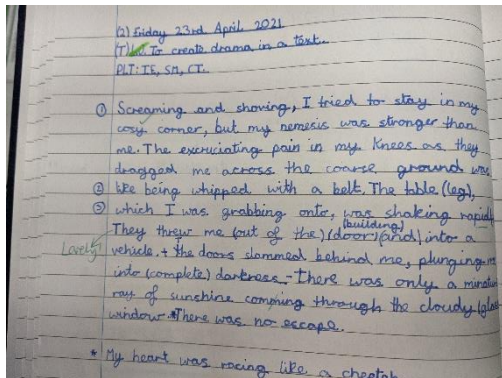 (2) Friday 23rd April 2021
(T) To create drama in a text.
PLT: IE, SM, CT.
① Screaming and shoving, I tried to stay in my
cosy corner, but my nemesis was stronger than
me. The excruciating pain in my knees as, they
dragged me across the coarse, ground was
② like being whipped with a belt. The table (leg),
③ which I was grabbing onto, was shaking
(building)
They threw me (out of the) (door) (and) into a
Lovely!
vehicle. + The doors slammed behind me, plunging
into (complete) darkness - There was only a
ray of sunshine coming through the cloudy
window. * There was no escape.
* My heart was racing like a cheetah